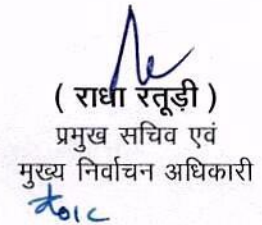 ( राधा रतूड़ी )
प्रमुख सचिव एवं
मुख्य निर्वाचन अधिकारी